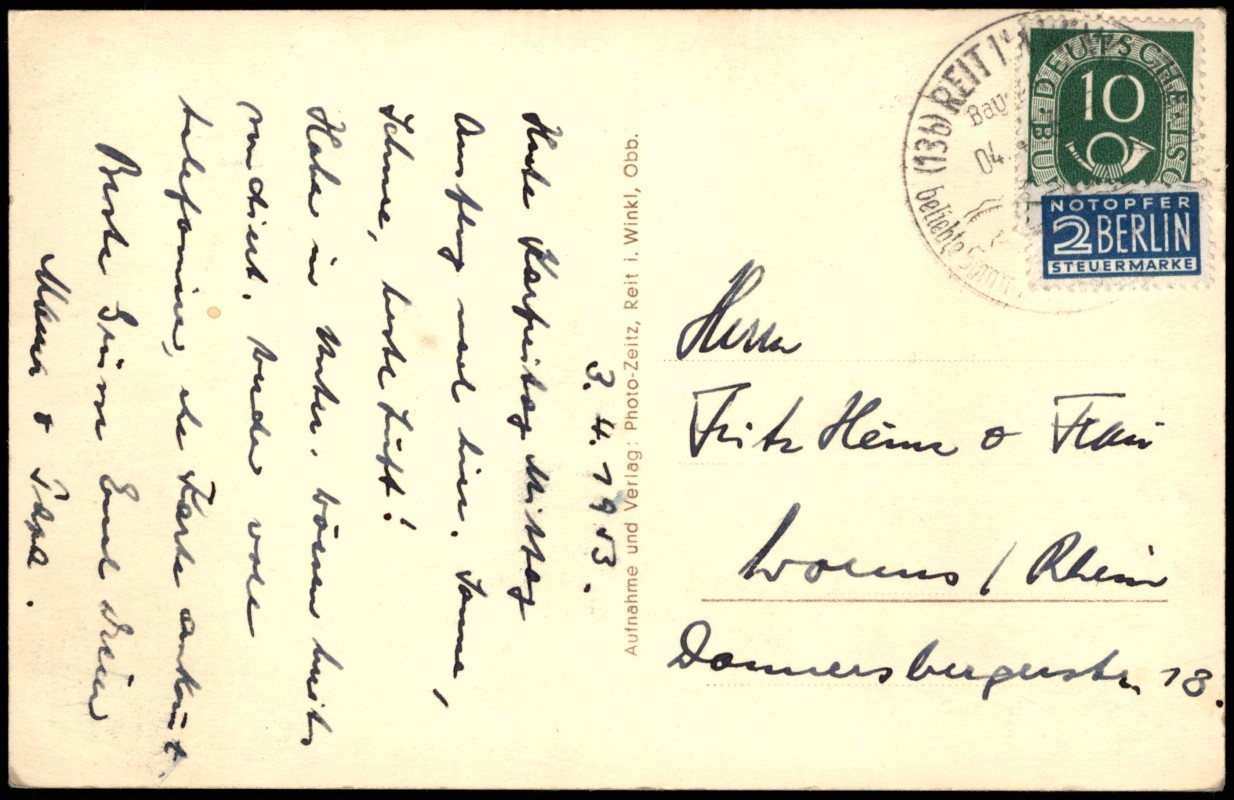 3. 4. 1953.
Heute Karfreitag Mittag
Ausflug nach hier. Sonne,
Schnee, beste Luft!
Habe in Unter. bereits
telefonier, ehe Karte ankomt.
Beste Grüsse
Mama & Papa.
Aufnahme und Verlag: Photo-Zeitz, Reit i. Winkl, Obb.
(13b) REIT I.
04.
beliebte Somm
DEUTSCHE BU
10
NOTOPFER
2 BERLIN
STEUERMARKE
Herrn
Fritz Heim & Frau
Worms / Rhein
Donnersbergerstr. 18.